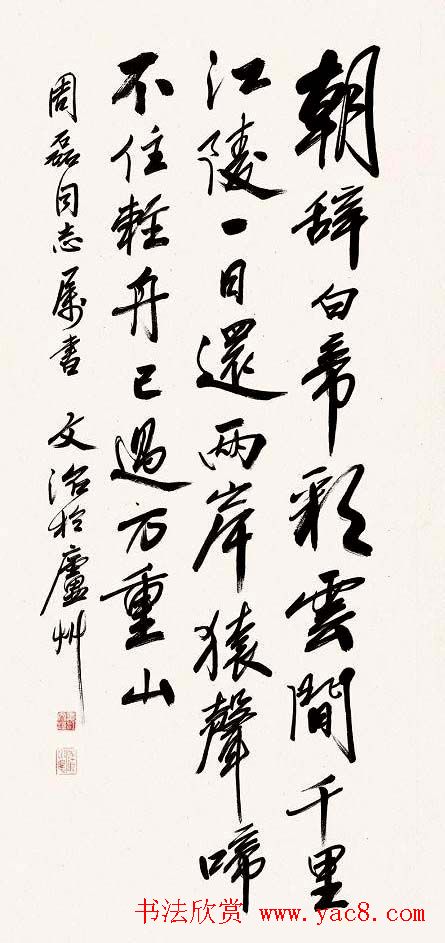 朝辞白帝彩雲間千里
江陵一日還兩岸猿聲啼
不住輕舟已過万重山
周磊同志属書 文治於廬州
书法欣赏 www.yac8.com